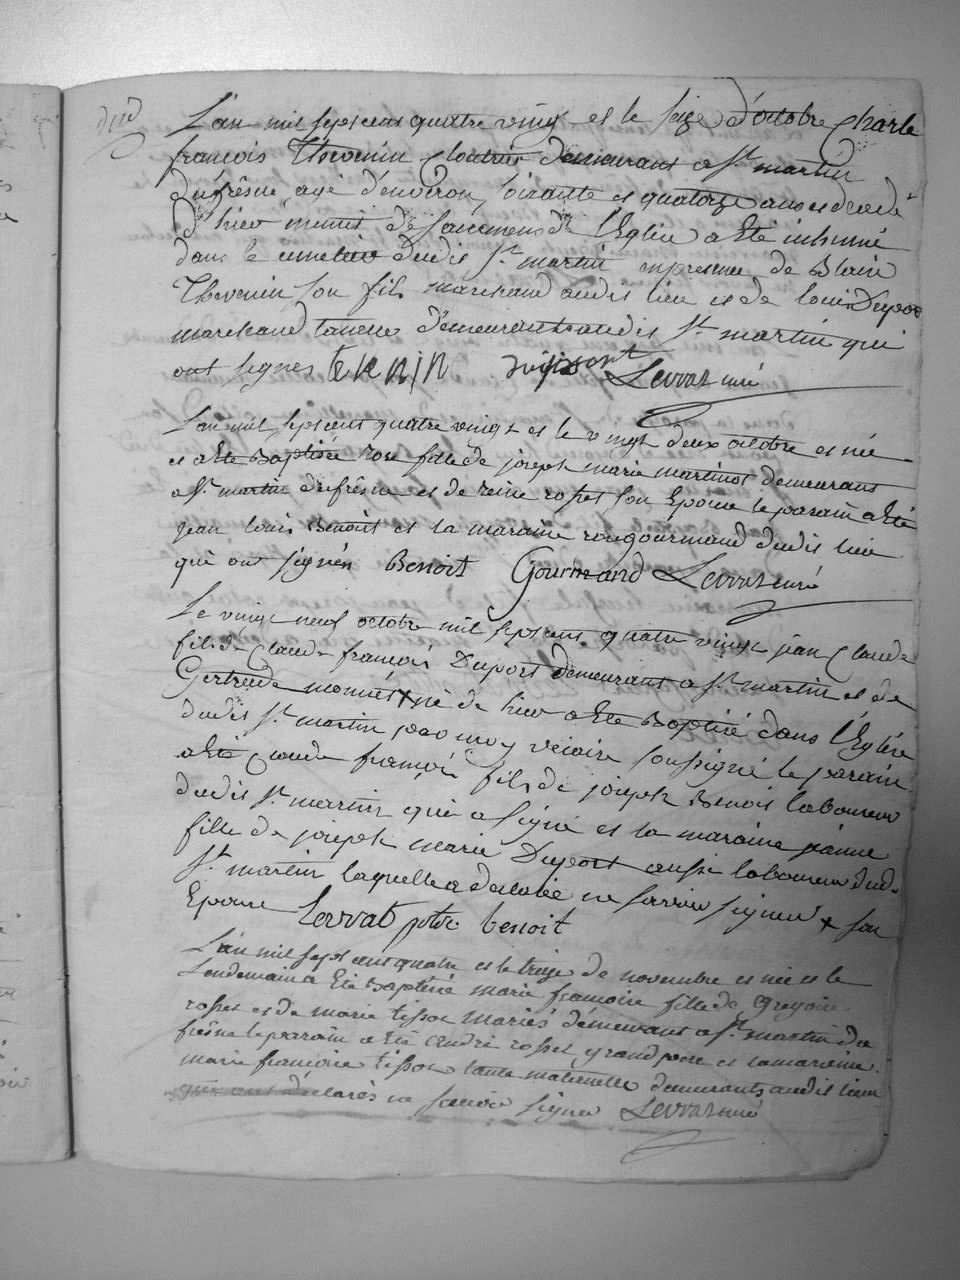 L'an mil sept cent quatre vingt et le seize d'octobre Charle
francois Thevenin demeurant a St martin
dufrêne agé d'environ soixante et quatorze ans et decedé
d'hier munis de sacremens de l'Eglise a été inhumé
dans le cimetiere dudit St martin en presence de Blaise
Thevenin son fils marchand audit lieu et de louis Dupor
marchand taneur demeurant audit St martin qui
ont signés Levrat curé
L'an mil sept cent quatre vingt et le vingt deux octobre est née
et a été Baptisée fille de joseph marie martinot demeurant
a St martin dufrêne et de reine rosset son Epouse le parain a été
jean louis Benoit et la maraine gourmand dudit lieu
qui ont signés Benoit Gourmand Levrat curé
Le vingt neuf octobre mil sept cent quatre vingt jean Claude
fils de Claude francois Duport demeurant a St martin et de
Gertrude monnet + né de hier a été Baptisé dans l'Eglise
dudit St martin par moy vicaire soussigné le parain
a été Claude françois fils de joseph Benoit laboureur
dudit St martin qui a signé et la maraine jeanne
fille de joseph marie Duport aussi laboureur dud.
St martin laquelle a declarée ne savoir signer + son
Epouse Levrat ptre benoit
L'an mil sept cent quatre et le treize de novembre est née et le
Lendemain a Eté Baptisée marie francoise fille de Gregoire
rosset et de marie tissot mariés demeurant a St martin du
frêne le parain a été André rosset grand pere et la maraine
marie francoise tissot tante maternelle demeurants audit lieu
qui ont declarés ne savoir signer Levrat curé